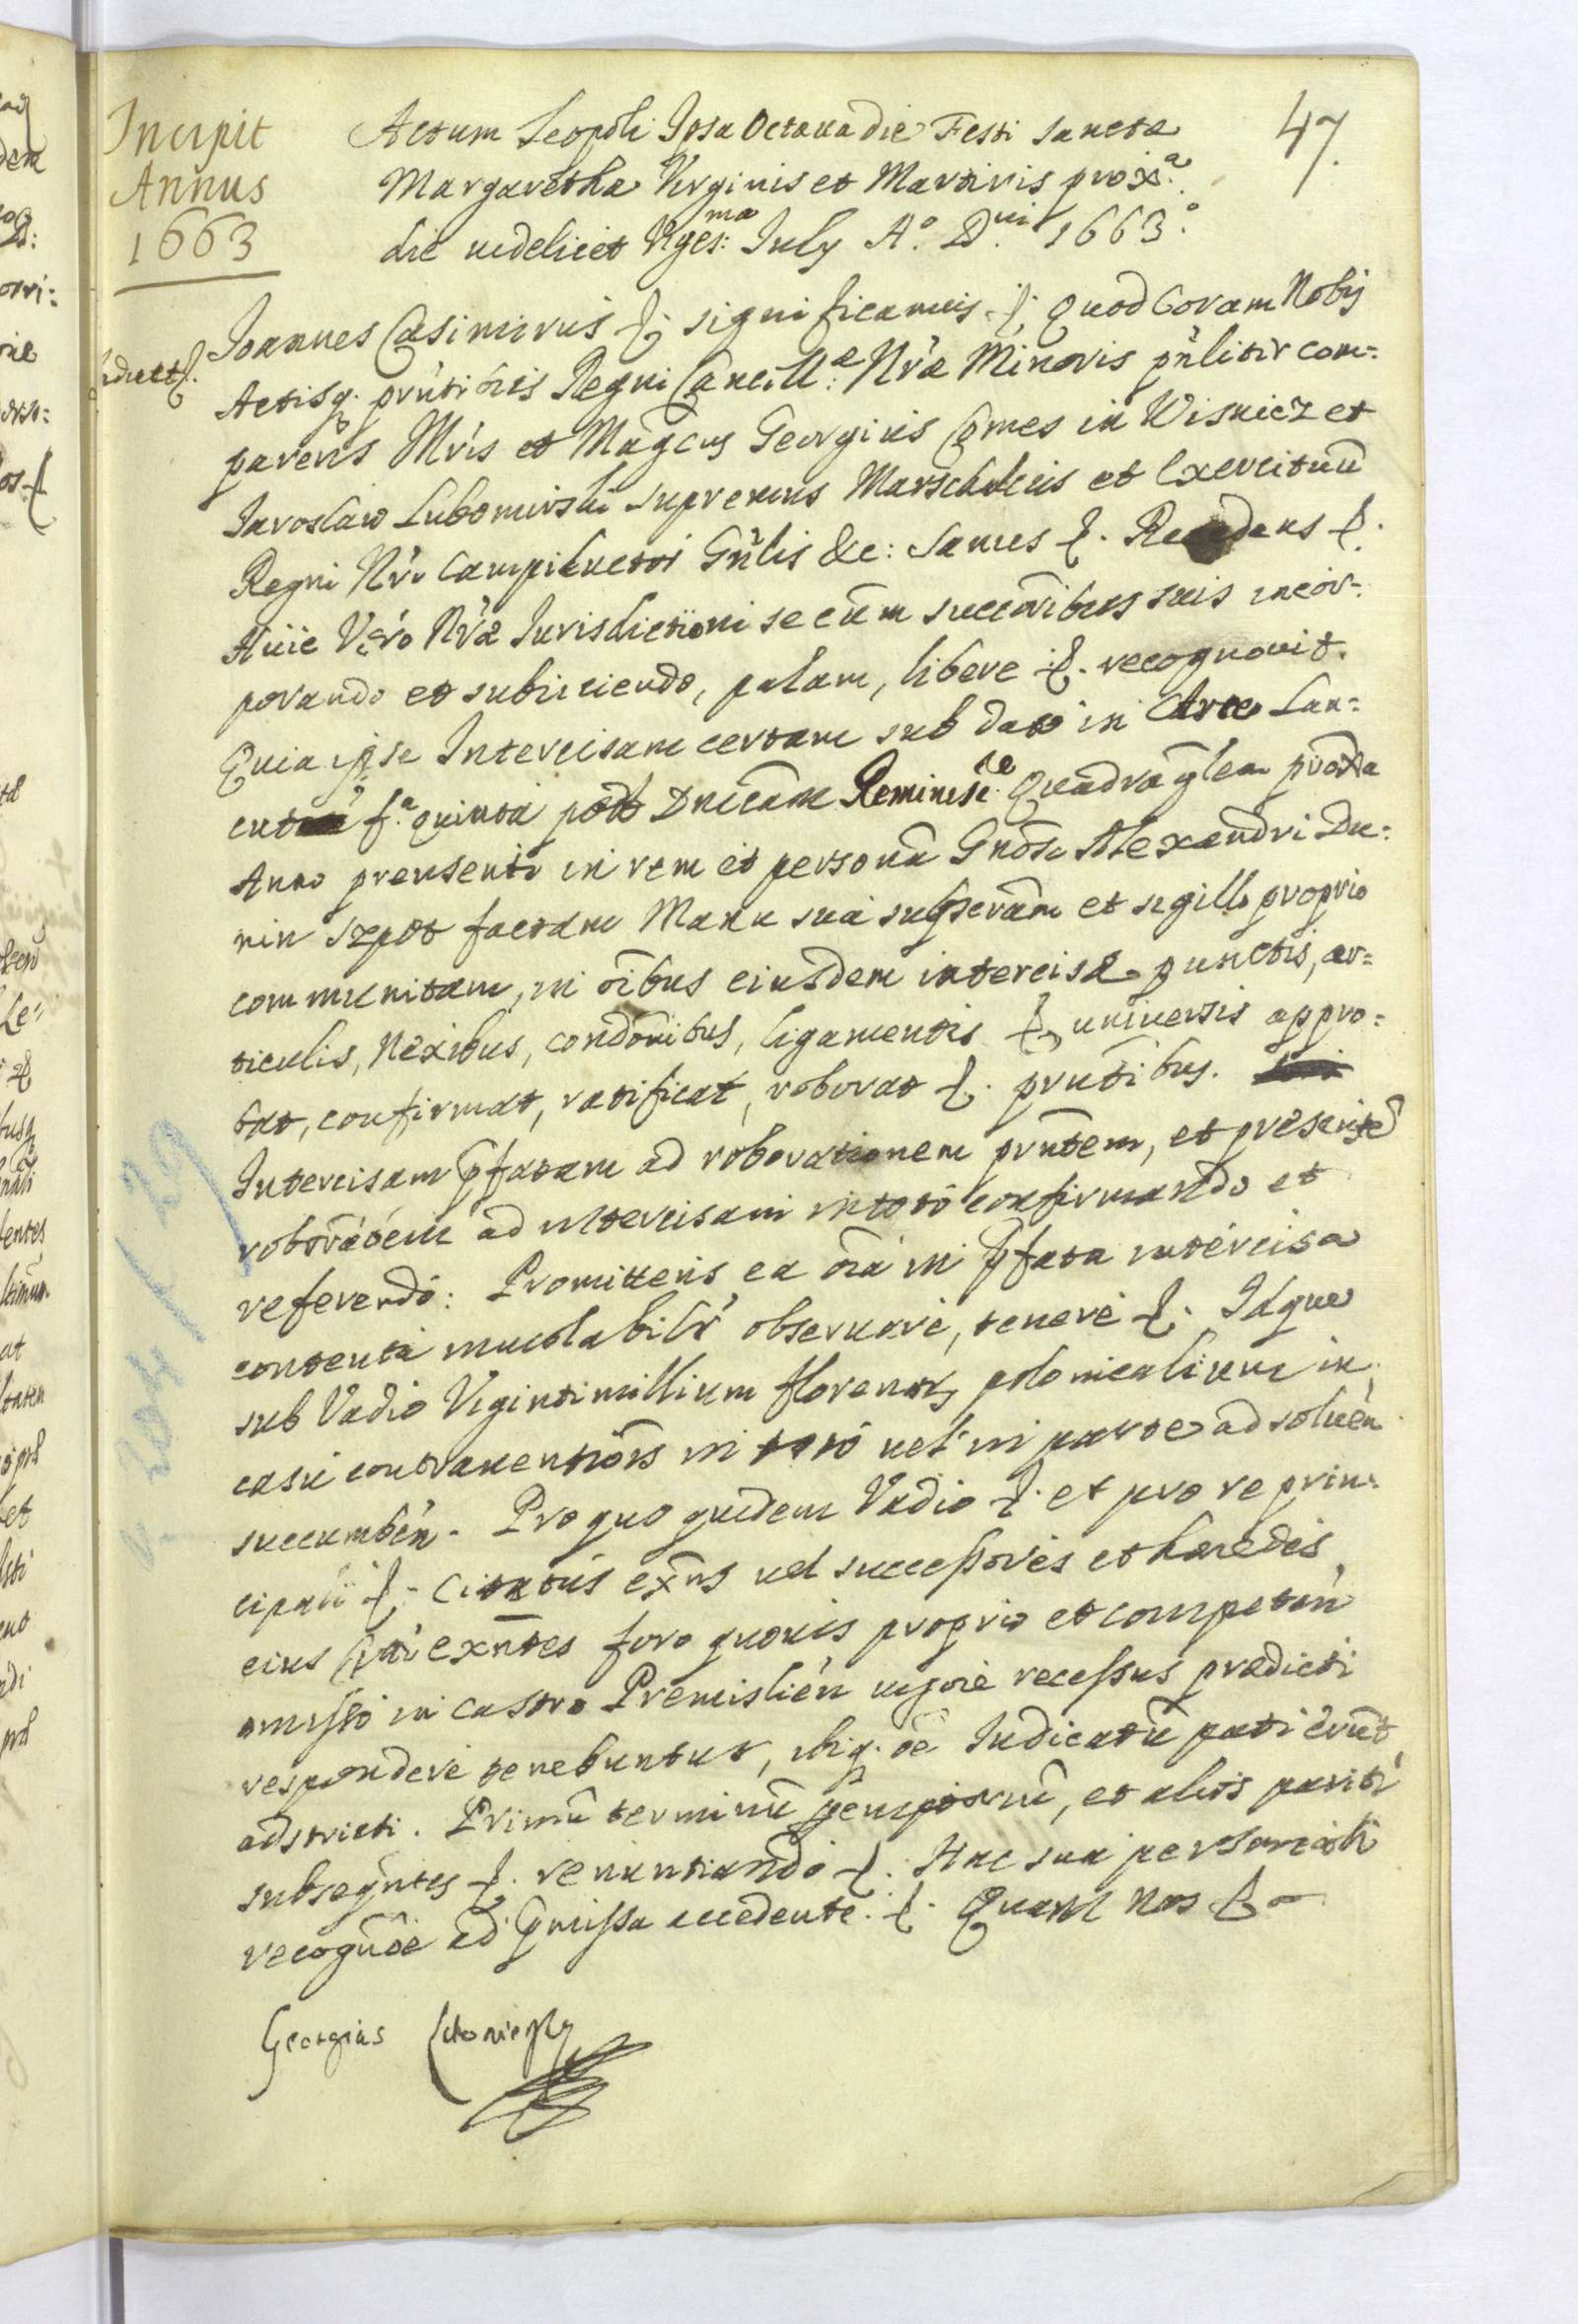 47.
Incipit
Annus
1663
Actum Leopoli Ipsa Octaua die Festi Sanctæ
Margarethæ Virginis et Martiris prox:a
die videlicet Viges:ma July A.o D.ni 1663.o
Ioannes Casimirus &. significamus &. Quod Coram Nobis
Actisq. pñtibus Regni Cancill:æ Nr̃æ Minoris pñliter com=
parens Mr̃is et Magcus Georgius Comes in Wisnicz et
Iaroslaw Lubomirski supremus Marschalcus et Exercituũ
Regni Nr̃i Campiductor Gñlis &c: sanus &. Recedens &.
Huic Vero Nr̃æ Iurisdictioni se cũm succoribus suis incor=
porando et subiiciendo, palam, libere &. recognouit.
Quia ipse Intercisam certam sub dato in Arce Lan=
cut f.a quinta post Dnicam Reminisc. Quadraglem proxa
Anno præsenti in rem et personã Gnosi Alexandri Du=
nin Szpot factam Manu sua subscram et sigillo proprio
communitam, in oibus eiusdem intercisæ punctis, ar=
ticulis, nexibus, condonibus, ligamentis &. uniuersis appro=
bat, confirmat, ratificat, roborat &. pñtibus.
Intercisam pfatam ad roborationem pñtem, et præsentẽ
roboraoem ad intercisam in toto confirmando et
referendo: Promittens ea oia in pfata intercisa
contenta inuiolabilr obseruare, tenere &. Idque
sub Vadio Viginti millium florenor polonicalium in
casu contrauentiois in toto uel in parte adsoluen
succumben. Pro quo quidem Vadio &. et pro re prin=
cipali &. Citatus exñs uel successores et hæredes
eius Citati exñtes foro quouis proprio et competen
omisso in castro Premislien uigore recessus prædicti
respondere tenebuntur, ibiq. oe Iudicatũ pati erunt
adstricti. Primũ terminũ pemptoriũ, et aliis pariti
subseqntes &. renuntiando &. Hac sua personali
recognõe ad pmissa accedente. &. Quam nos &
Georgius